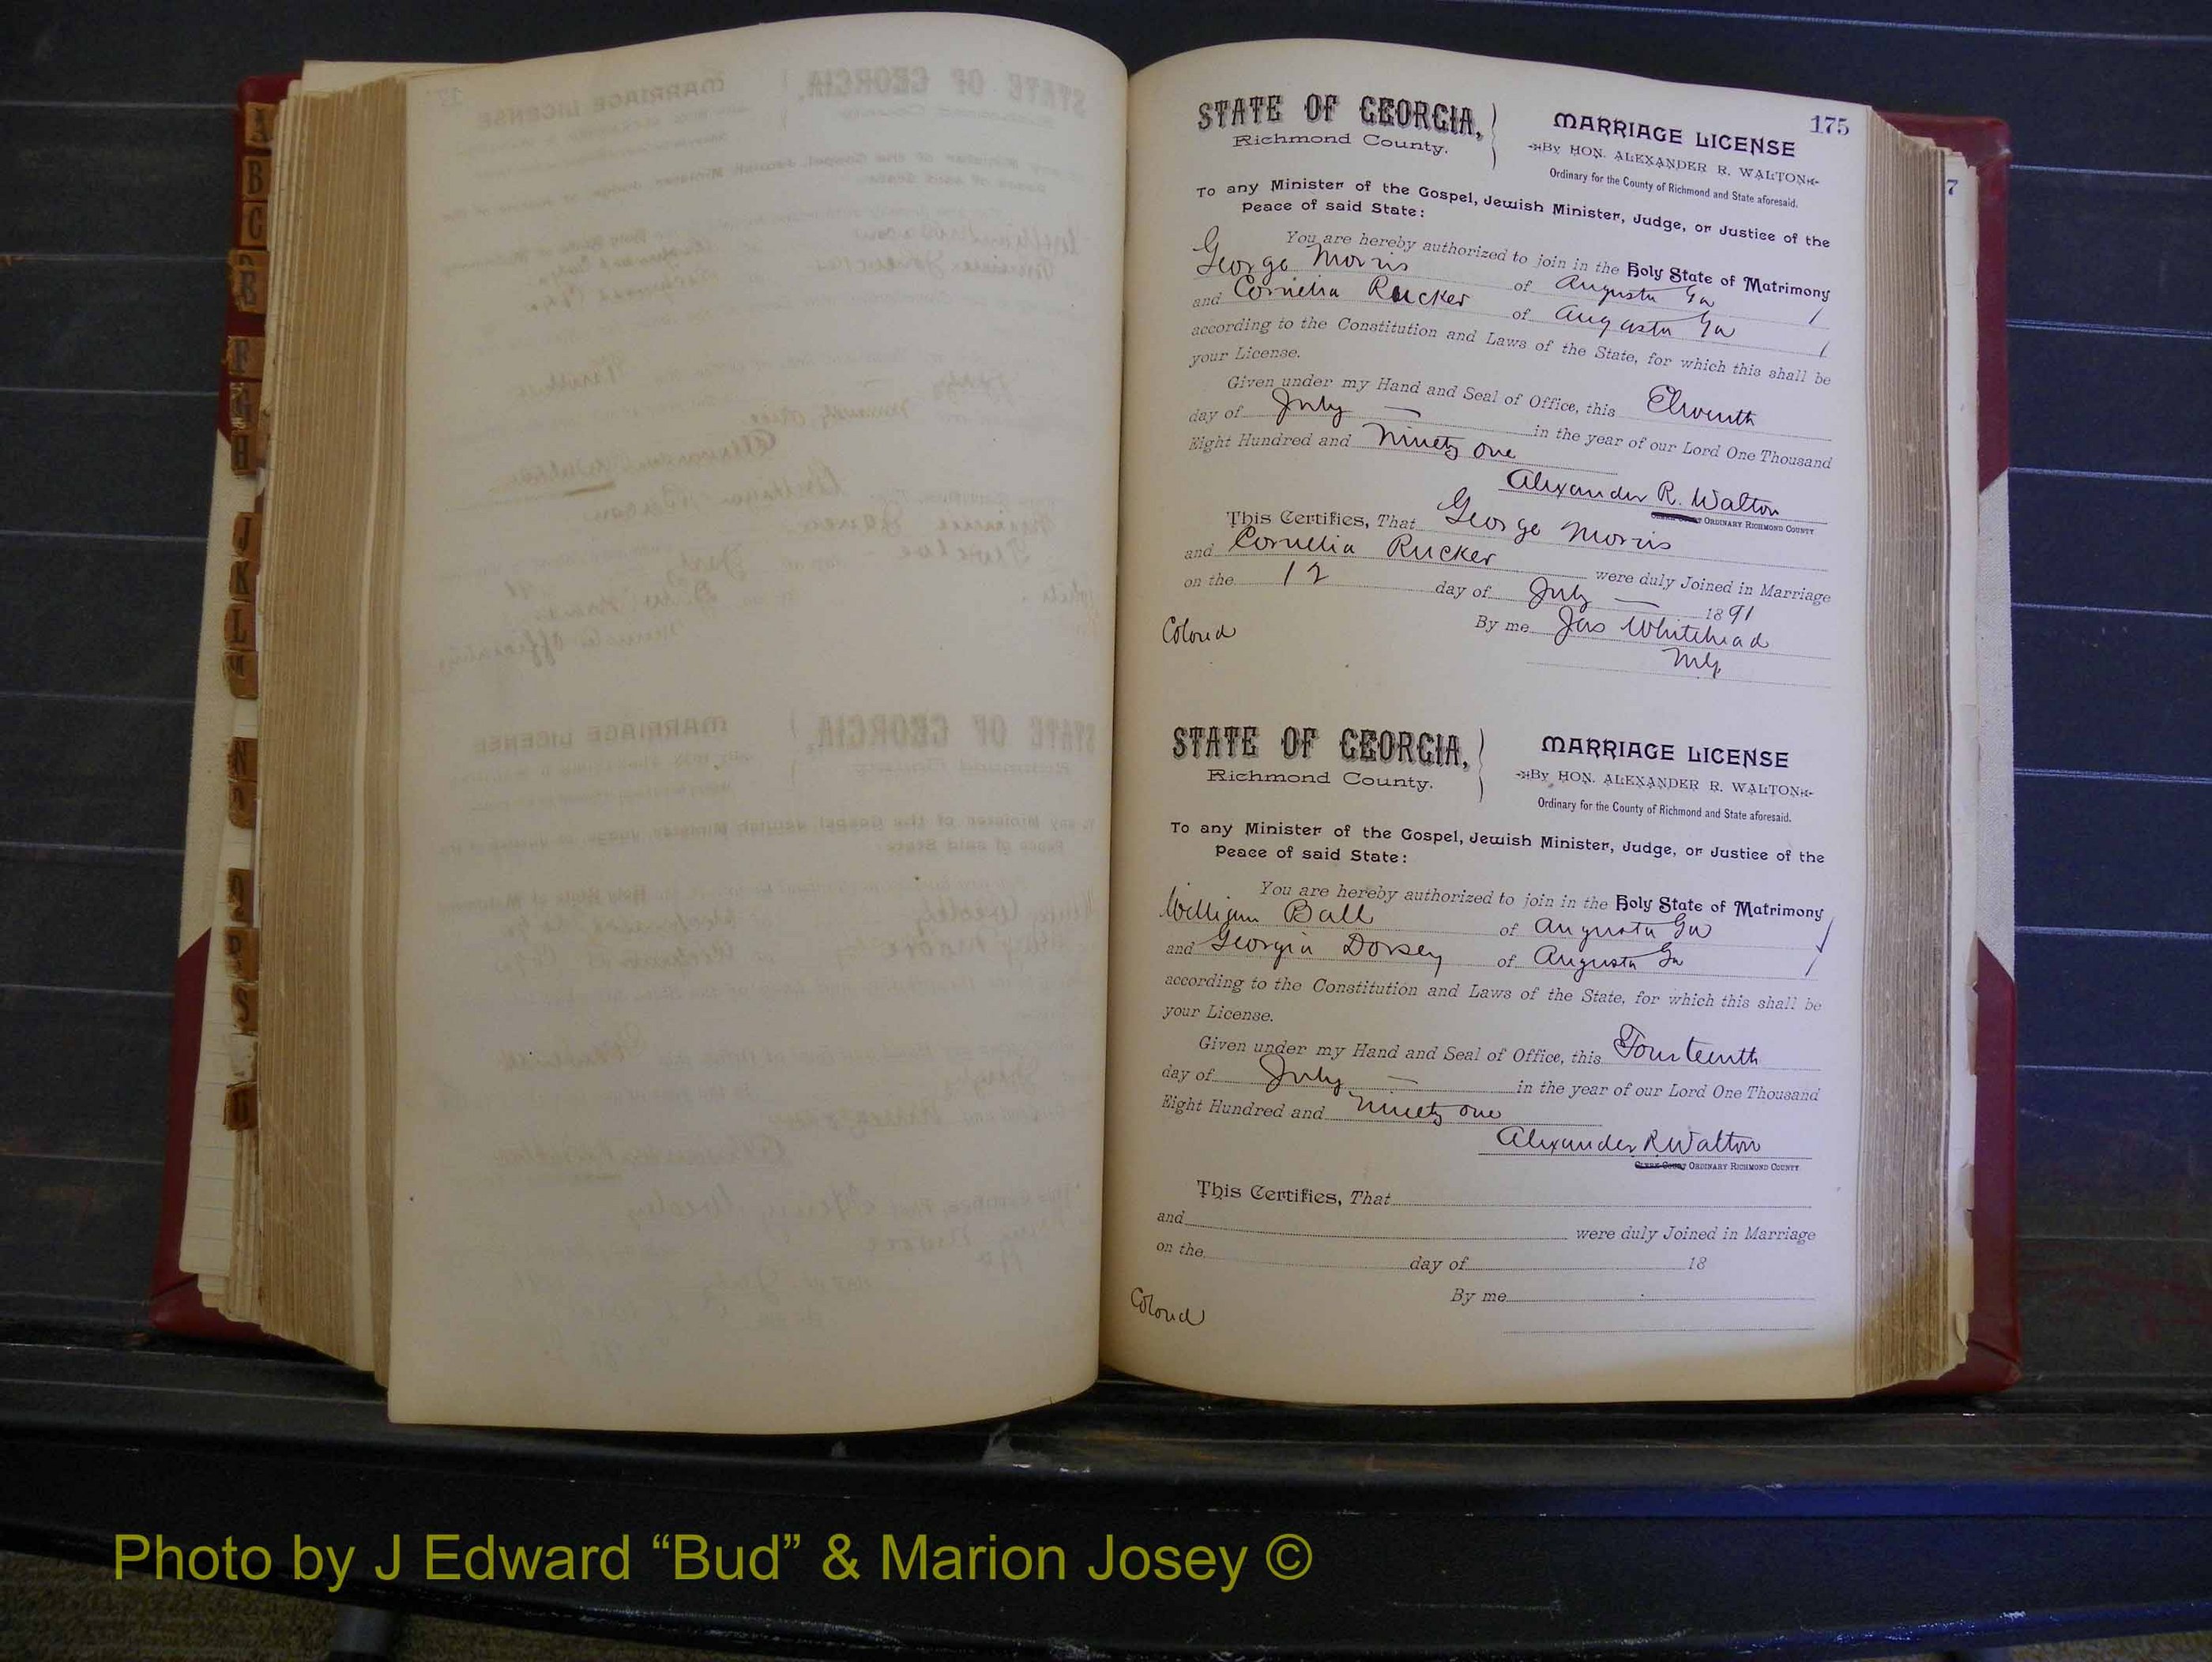 175
STATE OF GEORGIA,
Richmond County.
MARRIAGE LICENSE
By HON. ALEXANDER R. WALTON
Ordinary for the County of Richmond and State aforesaid.
To any Minister of the Gospel, Jewish Minister, Judge, or Justice of the
Peace of said State:
You are hereby authorized to join in the Holy State of Matrimony
George Morris of Augusta Ga
and Cornelia Rucker of Augusta Ga
according to the Constitution and Laws of the State, for which this shall be
your License.
Given under my Hand and Seal of Office, this Eleventh
day of July in the year of our Lord One Thousand
Eight Hundred and Ninety one
Alexander R. Walton
ORDINARY RICHMOND COUNTY
This Certifies, That George Morris
and Cornelia Rucker were duly Joined in Marriage
on the 12 day of July 1891
By me Jas Whitehead
MG
Colored
STATE OF GEORGIA,
Richmond County.
MARRIAGE LICENSE
By HON. ALEXANDER R. WALTON
Ordinary for the County of Richmond and State aforesaid.
To any Minister of the Gospel, Jewish Minister, Judge, or Justice of the
Peace of said State:
You are hereby authorized to join in the Holy State of Matrimony
William Ball of Augusta Ga
and Georgia Dorsey of Augusta Ga
according to the Constitution and Laws of the State, for which this shall be
your License.
Given under my Hand and Seal of Office, this Fourteenth
day of July in the year of our Lord One Thousand
Eight Hundred and Ninety one
Alexander R Walton
CLERK COURT ORDINARY RICHMOND COUNTY
This Certifies, That
and were duly Joined in Marriage
on the day of 18
By me
Colored
7
A
B
C
E
F
G
H
J
K
L
M
N
O
Q
R
S
Photo by J Edward “Bud” & Marion Josey ©